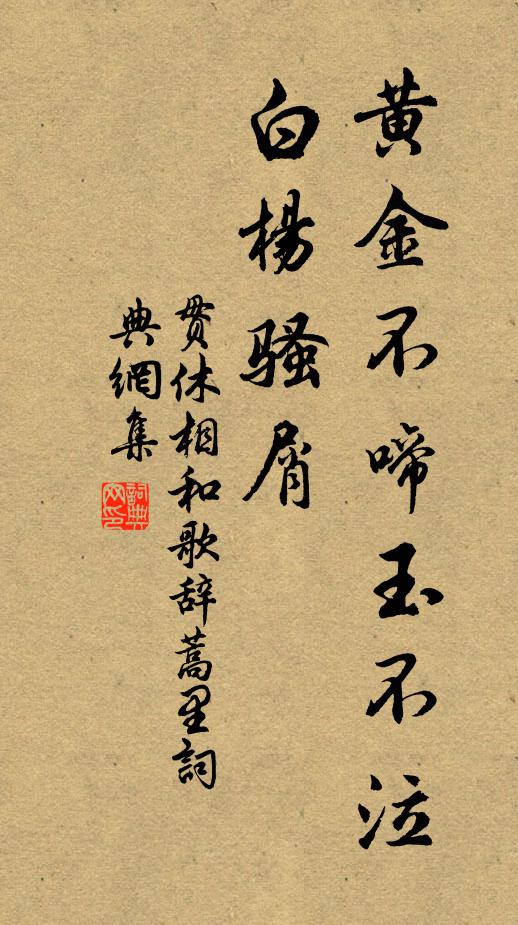 黄金不啼玉不泣
白楊騷屑
貫休相和歌辞蒿里詞
典網集
詞典
网印